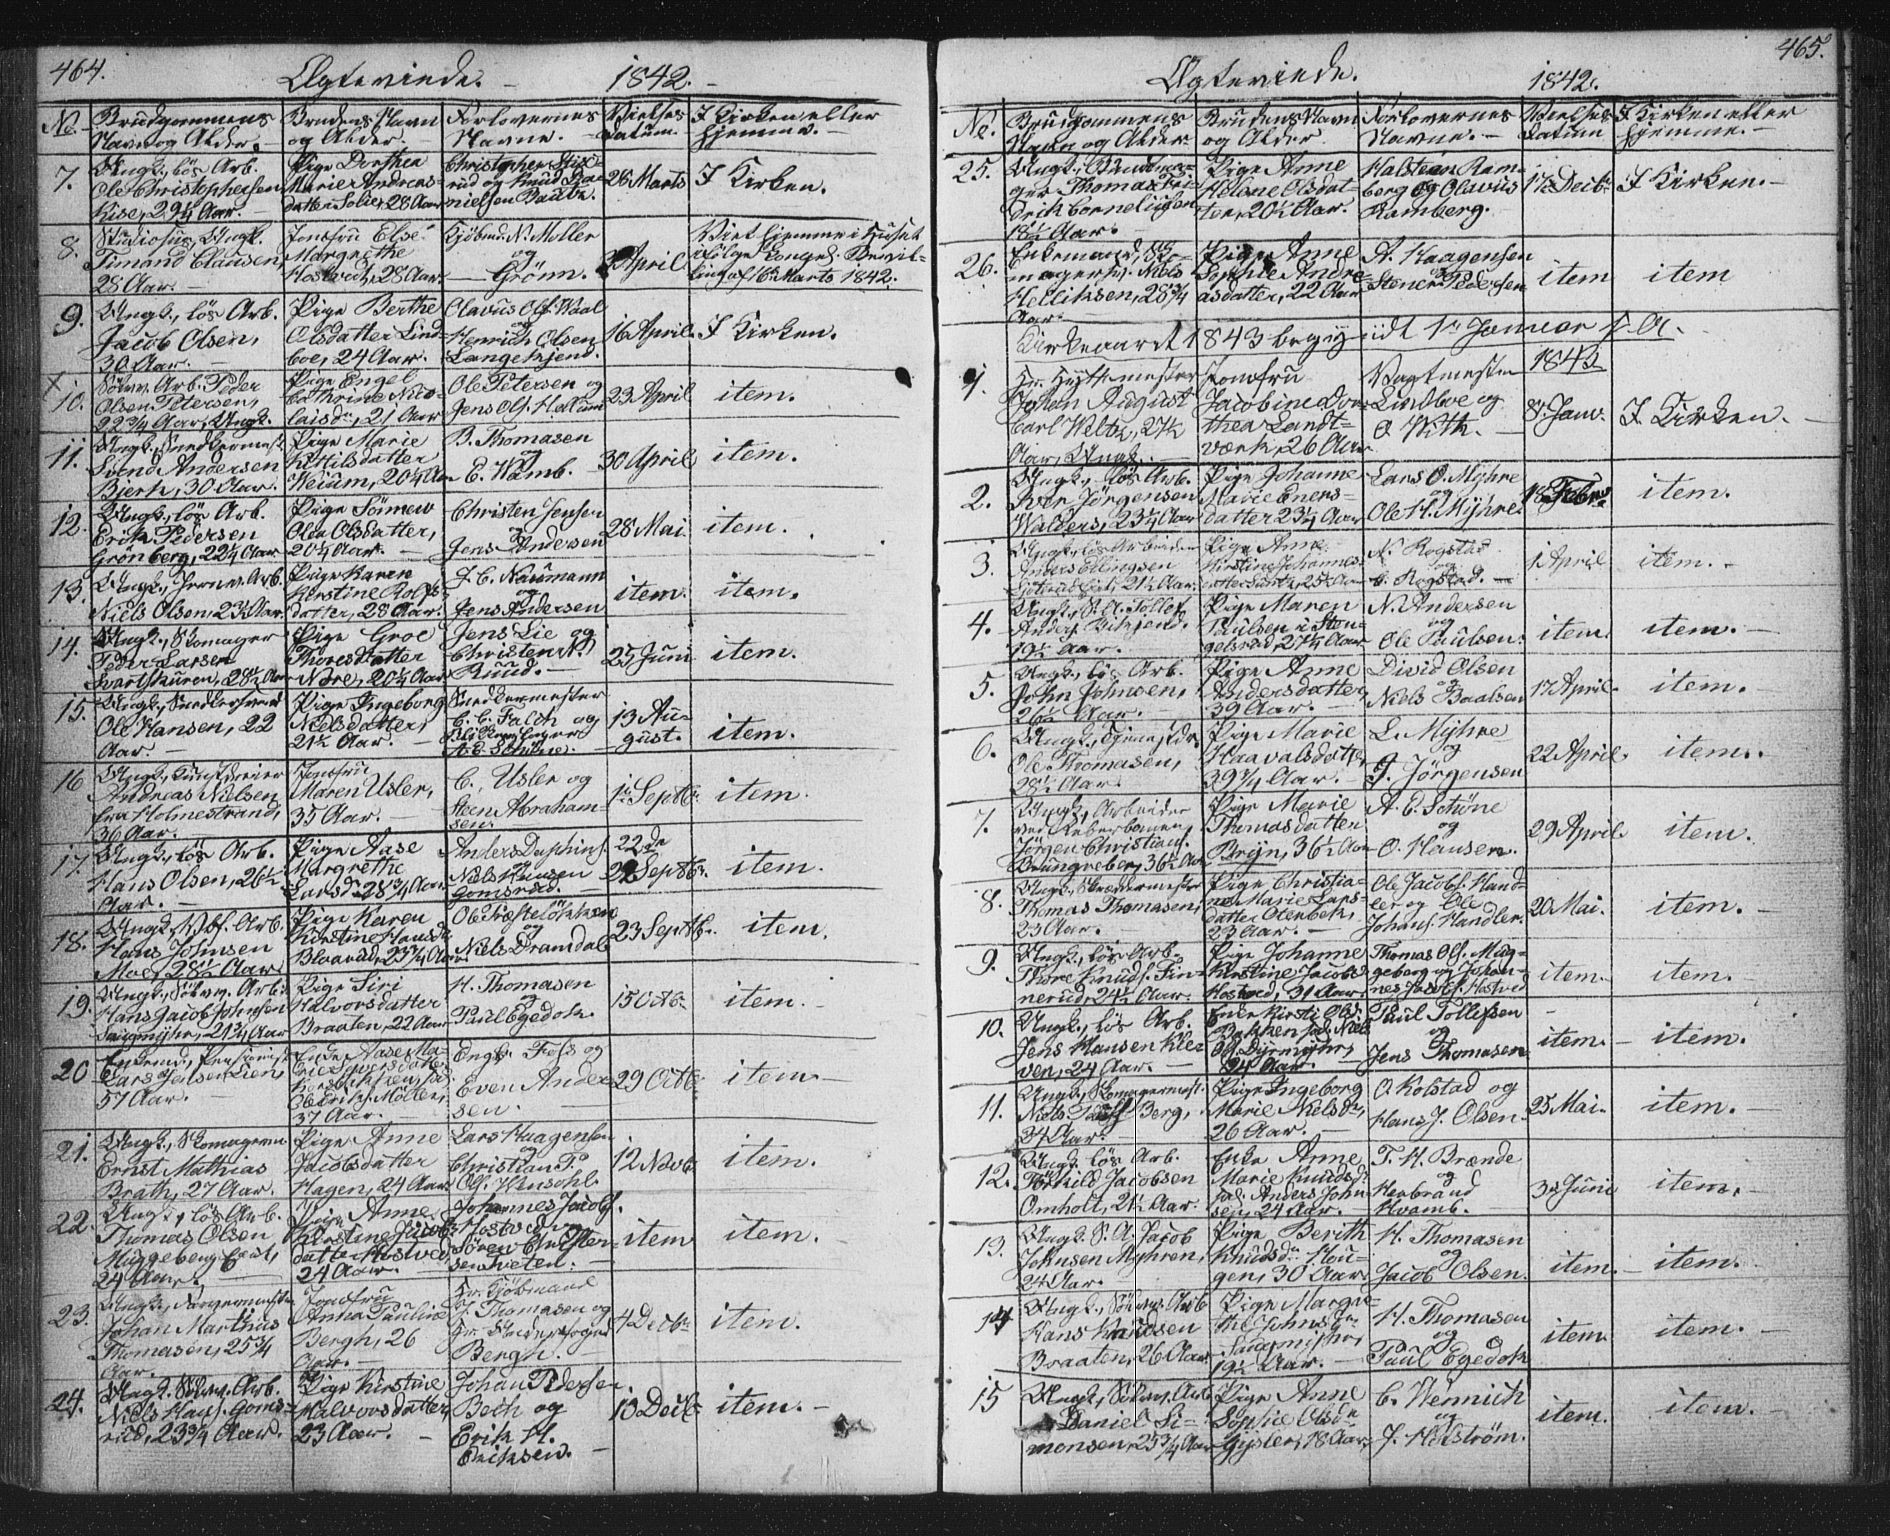 464.
Ægteviede. 1842.
No.
Brudgommens Navn og Alder.
Brudens Navn og Alder.
Forlovernes Navne.
Vielses datum.
I Kirken eller hjemme.
7.
Ungk., løs Arb.
Ole Christophersen
Kise, 29¼ Aar.
Pige Dorthea
Marie Andreas-
datter Solie, 28 Aar
Christopher
og Knud Da-
nielsen
26 Marts
I Kirken.
8.
Studiosus, Ungk.
Timand Claüsen,
28 Aar.
Jomfrü Else
Margrethe
Hostvedt, 28 Aar.
Kjøbmd. N. Møller
og
Grønn.
April
Viet hjemme i Huset
ifølge Kongel. Bevil-
ling af 16de Marts 1842.
9.
Ungk., løs Arb.
Jacob Olsen,
30 Aar.
Pige Berthe
Olsdatter Lind-
boe, 24 Aar.
Olaviüs Ols. Waal
og
Henrich Olsen
Langekjend.
16 April
I Kirken.
10.
Sølvv. Arb. Peder
Olsen Petersen,
22¾ Aar, Ungk.
Pige Engel
Cathrine Nico-
laisdr., 21 Aar
Ole Petersen og
Jens Ols.
23 April
item.
11.
Ungk., Snedkermest.
Svend Andersen
Bjerk, 30 Aar.
Pige Marie
Kittilsdatter
20¼ Aar
B. Thomasen
og
E. Wamb.
30 April
item.
12.
Ungk., løs Arb.
Erik Pedersen
Grønberg, 22¼ Aar
Pige
Olea Olsdatter,
20¼ Aar.
Christen Jensen
og
Jens Andersen
28 Mai
item.
13.
Ungk., Jernv. Arb.
Niels Olsen, 23½ Aar
Pige Karen
Kirstine Rolfs-
datter, 28 Aar.
J. C. Naümann
og
Jens Andersen
item.
item.
14.
Ungk., Skomager
Peder Larsen
Svartskuren, 28½ Aar
Pige Groe
Thoresdatter
Nore, 20¼ Aar
Jens Lie og
Christen P.
Ruüd.
25 Juni
item.
15.
Ungk., Snedkersvend
Ole Hansen, 22
Aar.
Pige Ingeborg
Nielsdatter,
21½ Aar.
Snedkermester
C. C. Falch og
A. E. Schøne.
13 Au-
güst.
item.
16
Ungk.,
Andreas Nielsen
fra Holmestrand,
36 Aar.
Jomfrü
Maren Usler,
35 Aar.
C. Usler og
Steen Abraham-
sen.
1ste Septbr.
item.
17.
Ungk., løs Arb.
Hans Olsen, 26½
Aar.
Pige Aase
Margrethe
Larsdr. 28¾ Aar
Anders
og
Niels Hansen
Gomsrüd.
22de
Septbr.
item.
18.
Ungk., Arb.
Hans Johnsen
Moe, 28½ Aar
Pige Karen
Kirstine Hansdr.
23¾ Aar
Ole
og
Niels Dramdal.
23 Septbr.
item.
19.
Ungk., Sølvv. Arb.
Hans Jacob Johnsen
Saugmyhr, 21¾ Aar
Pige Siri
Halvorsdatter
Braaten, 22 Aar
H. Thomasen
og
Paul Egedok.
15 Octbr.
item.
20
Enkemd., Pensionist
Lars Jensen Lien,
57 Aar.
Enke Aase Ma-
rie
37 Aar.
Engbr. Foss og
Even Ander-
sen.
29 Octbr.
item.
21.
Ungk., Skomagersv.
Ernst Mathias
Brath, 27 Aar.
Pige Anne
Jacobsdatter
Hagen, 24 Aar
Lars Haagensen
og
Christian P.
12 Novbr.
item.
22.
Ungk., løs Arb.
Thomas Olsen
Müggeberg
24 Aar.
Pige Anne
Kirstine Jacobs-
datter Hostved,
24 Aar.
Johannes Jacobs.
Hostved og
Søren Christen-
sen Tveten.
item
item.
23.
Ungk.,
Johan Marthius
Thomasen, 25¾
Aar.
Jomfrü
Anna Pauline
Bergh, 26
Aar.
Hr. Kjøbmand
J. Thomasen og
Hr. Underfoged
Bergh.
4 Decbr.
item.
24.
Ungk. Sølvv. Arb.
Niels Hans. Goms-
rüd, 23¾ Aar.
Pige Kirstine
Halvorsdatter
23 Aar.
Johan Pedersen
Bech og
Erik H.
Eriksen.
13 Decbr.
item.
465.
Ægteviede. 1842.
No.
Brudgommens Navn og Alder.
Brudens Navn og Alder
Forlovernes Navne.
Vielses datum
I Kirken eller hjemme.
25.
Ungk.,
Thomas Fri-
drik Corneliüsen
18½ Aar.
Pige Anne
Helene Olsdat-
ter, 20½ Aar.
Halsteen Ram-
berg og Olaviüs
Ramberg.
17de Decbr.
I Kirken.
26.
Enkemand, Sko-
magersv. Niels
Helliksen, 28¾
Aar.
Pige Anne
Sophie Andre-
asdatter, 22 Aar
A. Haagensen
og
Stener Pedersen
item
item
Kirkeaaret 1843 begyndt 1ste Januar s. A.
1843
1.
Hr. Hyttemester
Johan August
Carl Weltz, 27½
Aar, Ungk.
Jomfrü
Jacobine Doro-
thea Landt-
værk, 26 Aar
Vagtmester
Lindboe og
O. With.
8de Janv.
I Kirken.
2.
Ungk., løs Arb.
Iver Jørgensen
Walders, 23¼ Aar
Pige Johanne
Marie Eners-
datter 23¼ Aar
Lars O. Myhre
og
Ole H. Myhre.
18 Febr.
item.
3.
Ungk., løs Arbeider
Anders Ellingsen
21½ Aar.
Pige Anne
Kirstine Johannes-
datter 25 Aar
N. Rogstad
og
C. Rogstad.
1 April
item.
4.
Ungk., S. A. Tollef
Anders. Bikjend.
19½ Aar.
Pige Maren
Paülsen i Sten-
gelsrud, 27¼ Aar
N. Andersen
og
Ole Paülsen.
item.
item.
5.
Ungk., løs Arb.
John Johnsen,
26½ Aar.
Pige Anne
Andersdatter
39 Aar.
David Olsen
og
Niels Paulsen
17 April.
item.
6.
Ungk.,
Ole Thomasen,
28½ Aar.
Pige Marie
Haavalsdatter,
39¾ Aar.
L. Myhre
og
J. Jørgensen
22 April.
item.
7.
Ungk., Arbeider
ved Reberbanen,
Jørgen Christians.
Brüngreber, 36½ Aar
Pige Marie
Thomasdatter
Bryn, 36½ Aar
A. E. Schøne
og
O. Hansen.
29 April.
item.
8.
Ungk., Skræddermester
Thomas Thomasen,
23 Aar.
Pige Christia-
ne Marie Lars-
datter Oterbek,
23 Aar.
Ole Jacobs. Hand-
ler og Ole
Johans. Handler.
20 Mai.
item.
9.
Ungk., løs Arb.
Thore Knüds. Fin-
nerüd, 24½ Aar.
Pige Johanne
Kirstine Jacobsdr.
Hostved, 31 Aar.
Thomas Ols. Müg-
geberg og Johan-
nes Jacobs. Hostved
item.
item.
10.
Ungk., løs Arb.
Jens Hansen Klev-
ven, 24 Aar.
Enke Kirsti Olsd.
Bakken
Dyrmyhr,
34 Aar.
Paul Tollefsen
og
Jens Thomasen
item.
item.
11.
Ungk., Skomagermest.
Niels Berg,
34 Aar.
Pige Ingeborg
Marie Nielsdr.,
26 Aar.
O. Kolstad og
Hans J. Olsen.
25 Mai.
item.
12.
Ungk. løs Arb.
Torkild Jacobsen
Omholt, 21½ Aar.
Enke Anne
Marie Knudsdr.
sal. Anders John-
sen, 24 Aar.
T. H. Brænde
og
Herbrand
Kvamb.
3die Junii
item.
13.
Ungk. S. A. Jacob
Johnsen Myhren,
24 Aar.
Pige Berith
Knudsdr. Hou-
gen, 30 Aar.
H. Thomasen
og
Jacob Olsen.
item.
item.
14
Ungk., Sølvv. Arb.
Hans Knudsen
Braaten, 26 Aar.
Pige Margre-
the Johnsdr.
Saugmyhr,
19½ Aar.
H. Thomasen
og
Paul Egedok
item.
item.
15
Ungk., Sølvv. Arb.
Daniel Si-
monsen, 25¾ Aar
Pige Anne
Sophie Olsdr.
Gisler, 18 Aar,
C. Wennich
og
J. Holstrøm.
item.
item.